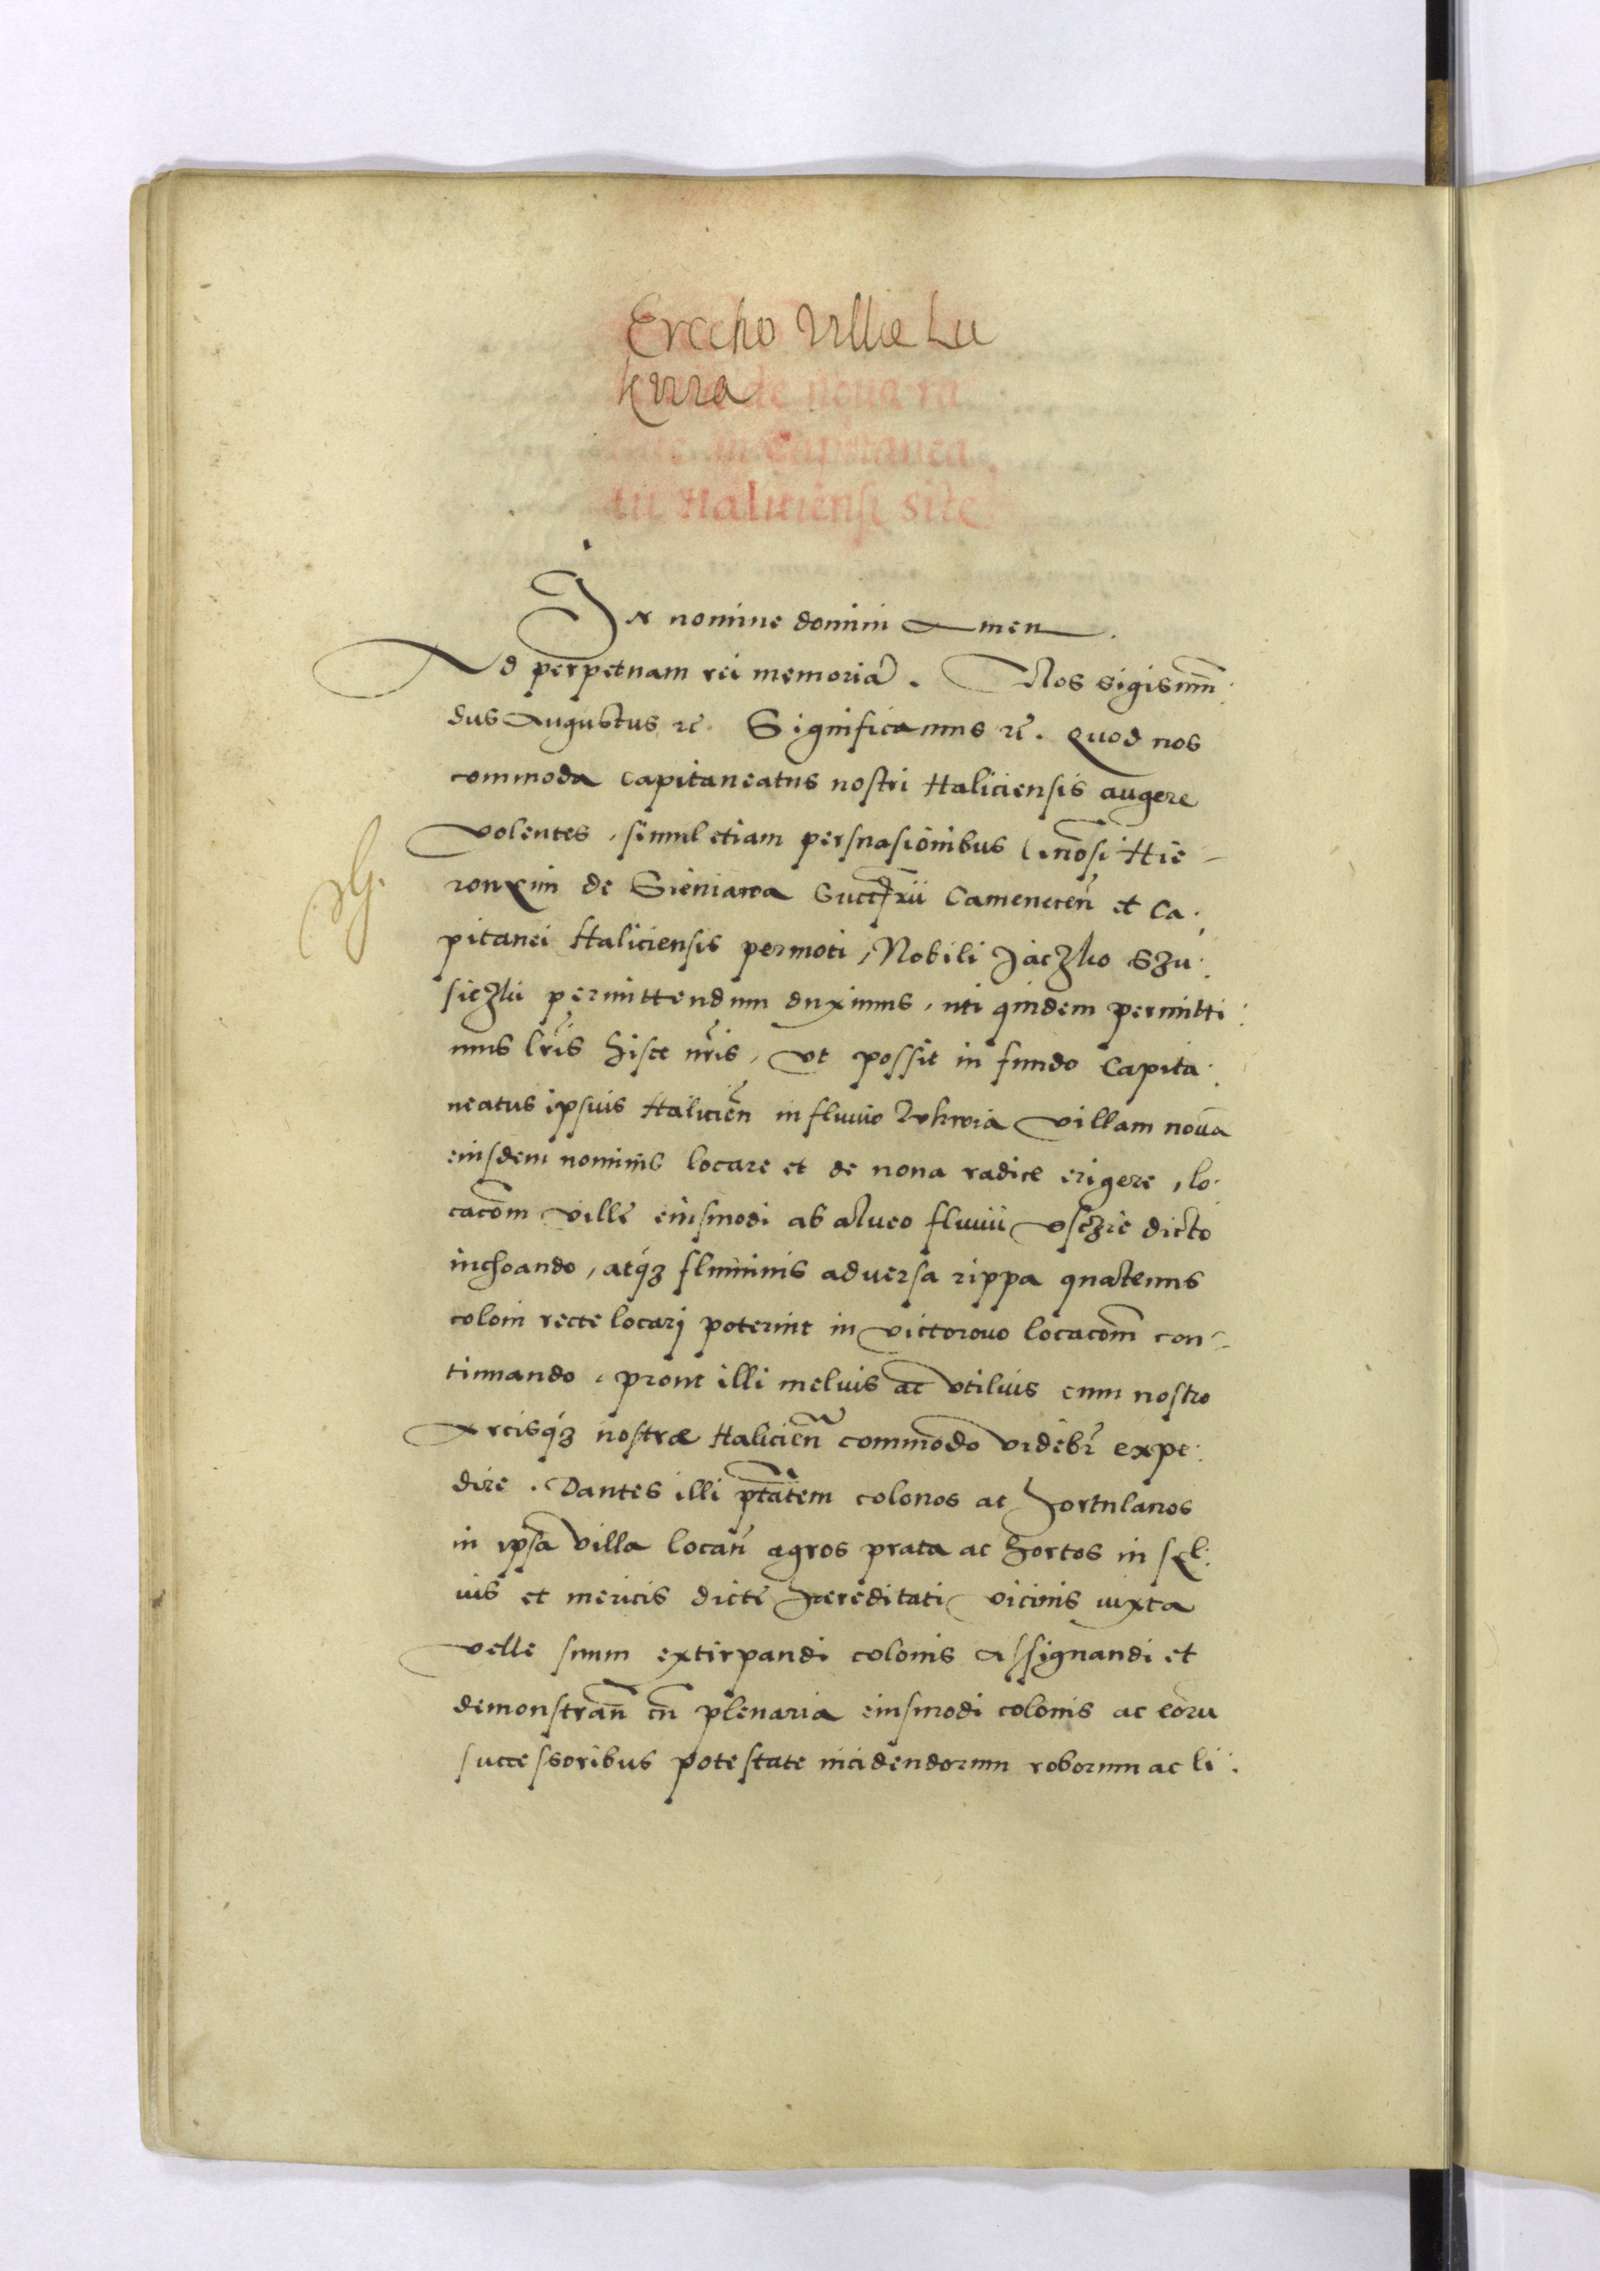 Erectio Villae Lu
kwia de noua ra
in Capitanea
tu Haliciensi sitę
In nomine domini Amen.
Ad perpetuam rei memoriā. Nos Sigismū:
dus Augustus ꝛc̄. Significamus ꝛc̄. Quod nos
commoda Capitaneatus nostri Haliciensis augere
volentes, simul etiam persuasionibus Gn̄osi Hie-
ronymi de Sieniawa Succam̄rii Camenecen̄ et Ca:
pitanei Haliciensis permoti, Nobili Jaczko Szu:
siczki permittendum duximus, uti quidem permitti:
mus lr̄is hisce nr̄is, Vt possit in fundo Capita:
neatus ipsius Halicień in fluuio Lukwia villam nouā
eiusdem nominis locare et de noua radice erigere, lo:
cacōm villę eiusmodi ab alueo fluuii Vsczie dicto
inchoando, atq́ꝫ fluminis aduersa rippa quatenus
coloni recte locari poterint in Victorowo locacōm con-
tinuando, prout illi melius ac vtilius cum nostro
Arcisq́ꝫ nostræ Halicień commodo videbr̄ expe:
dire. Dantes illi ptātem colonos ac hortulanos
in ipsa villa locań agros prata ac hortos in syl:
uis et mericis dictę haereditati vicinis iuxta
velle suum extirpandi colonis assignandi et
demonstrań cū plenaria eiusmodi colonis ac eorū
successoribus potestate incidendorum roborum ac li: